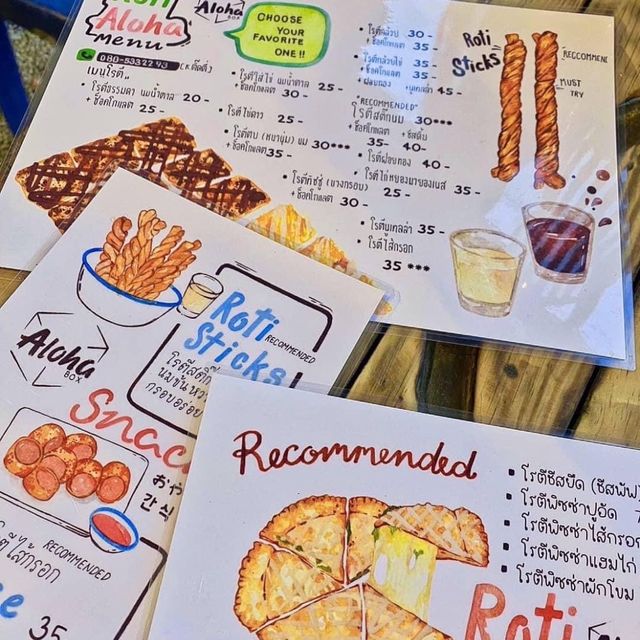 Roti
Aloha
Menu
Aloha
BOX
CHOOSE
YOUR
FAVORITE
ONE!!
เมนูโรตี
• โรตีธรรมดา นมน้ำตาล 20 -
+ ช็อคโกแลต 25 -
• โรตีใส่ไข่ นมน้ำตาล 25 -
+ ช็อคโกแลต 30 -
• โรตีไข่ดาว 25 -
นม 30***
+ ช็อคโกแลต 35 -
(บางกรอบ) 25 -
+ ช็อคโกแลต 30 -
• โรตีกล้วย 30 -
+ช็อคโกแลต 35 -
• โรตีกล้วยไข่ 35 -
+ช็อคโกแลต 40 -
+นูเทลล่า 45 -
"RECOMMENDED"
โรตีสติ๊กนม 30***
+ ช็อคโกแลต
35-
40-
• โรตีฝอยทอง 40-
35 -
• โรตีนูเทลล่า 35 -
• โรตีไส้กรอก
35 ***
Roti
Sticks
RECCOMMENE
MUST
TRY
Aloha
BOX
Roti
Sticks
RECOMMENDED
โรตีสติ๊ก
นมข้นหวา
กรอบอร่อย
Snac
おや
간식
RECOMMENDED
35
Recommended
• โรตีชีสยืด (ชีสพัฟ)
• โรตีพิซซ่าปูอัด
• โรตีพิซซ่าไส้กรอก
• โรตีพิซซ่าแฮมไก่
• โรตีพิซซ่าผักโขม
Roti